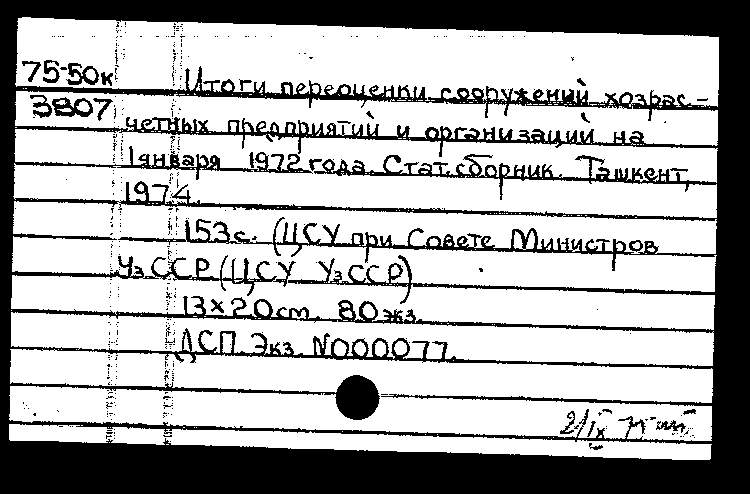 75-50к Итоги переоценки сооружений хозрас-
3807 четных предприятий и организаций на
1 января 1972 года. Стат. сборник. Ташкент,
1974.
153с. (ЦСУ при Совете Министров
УзССР (ЦСУ УзССР)
13×20см. 80 экз.
ДСП. Экз. N000077.
2/IX